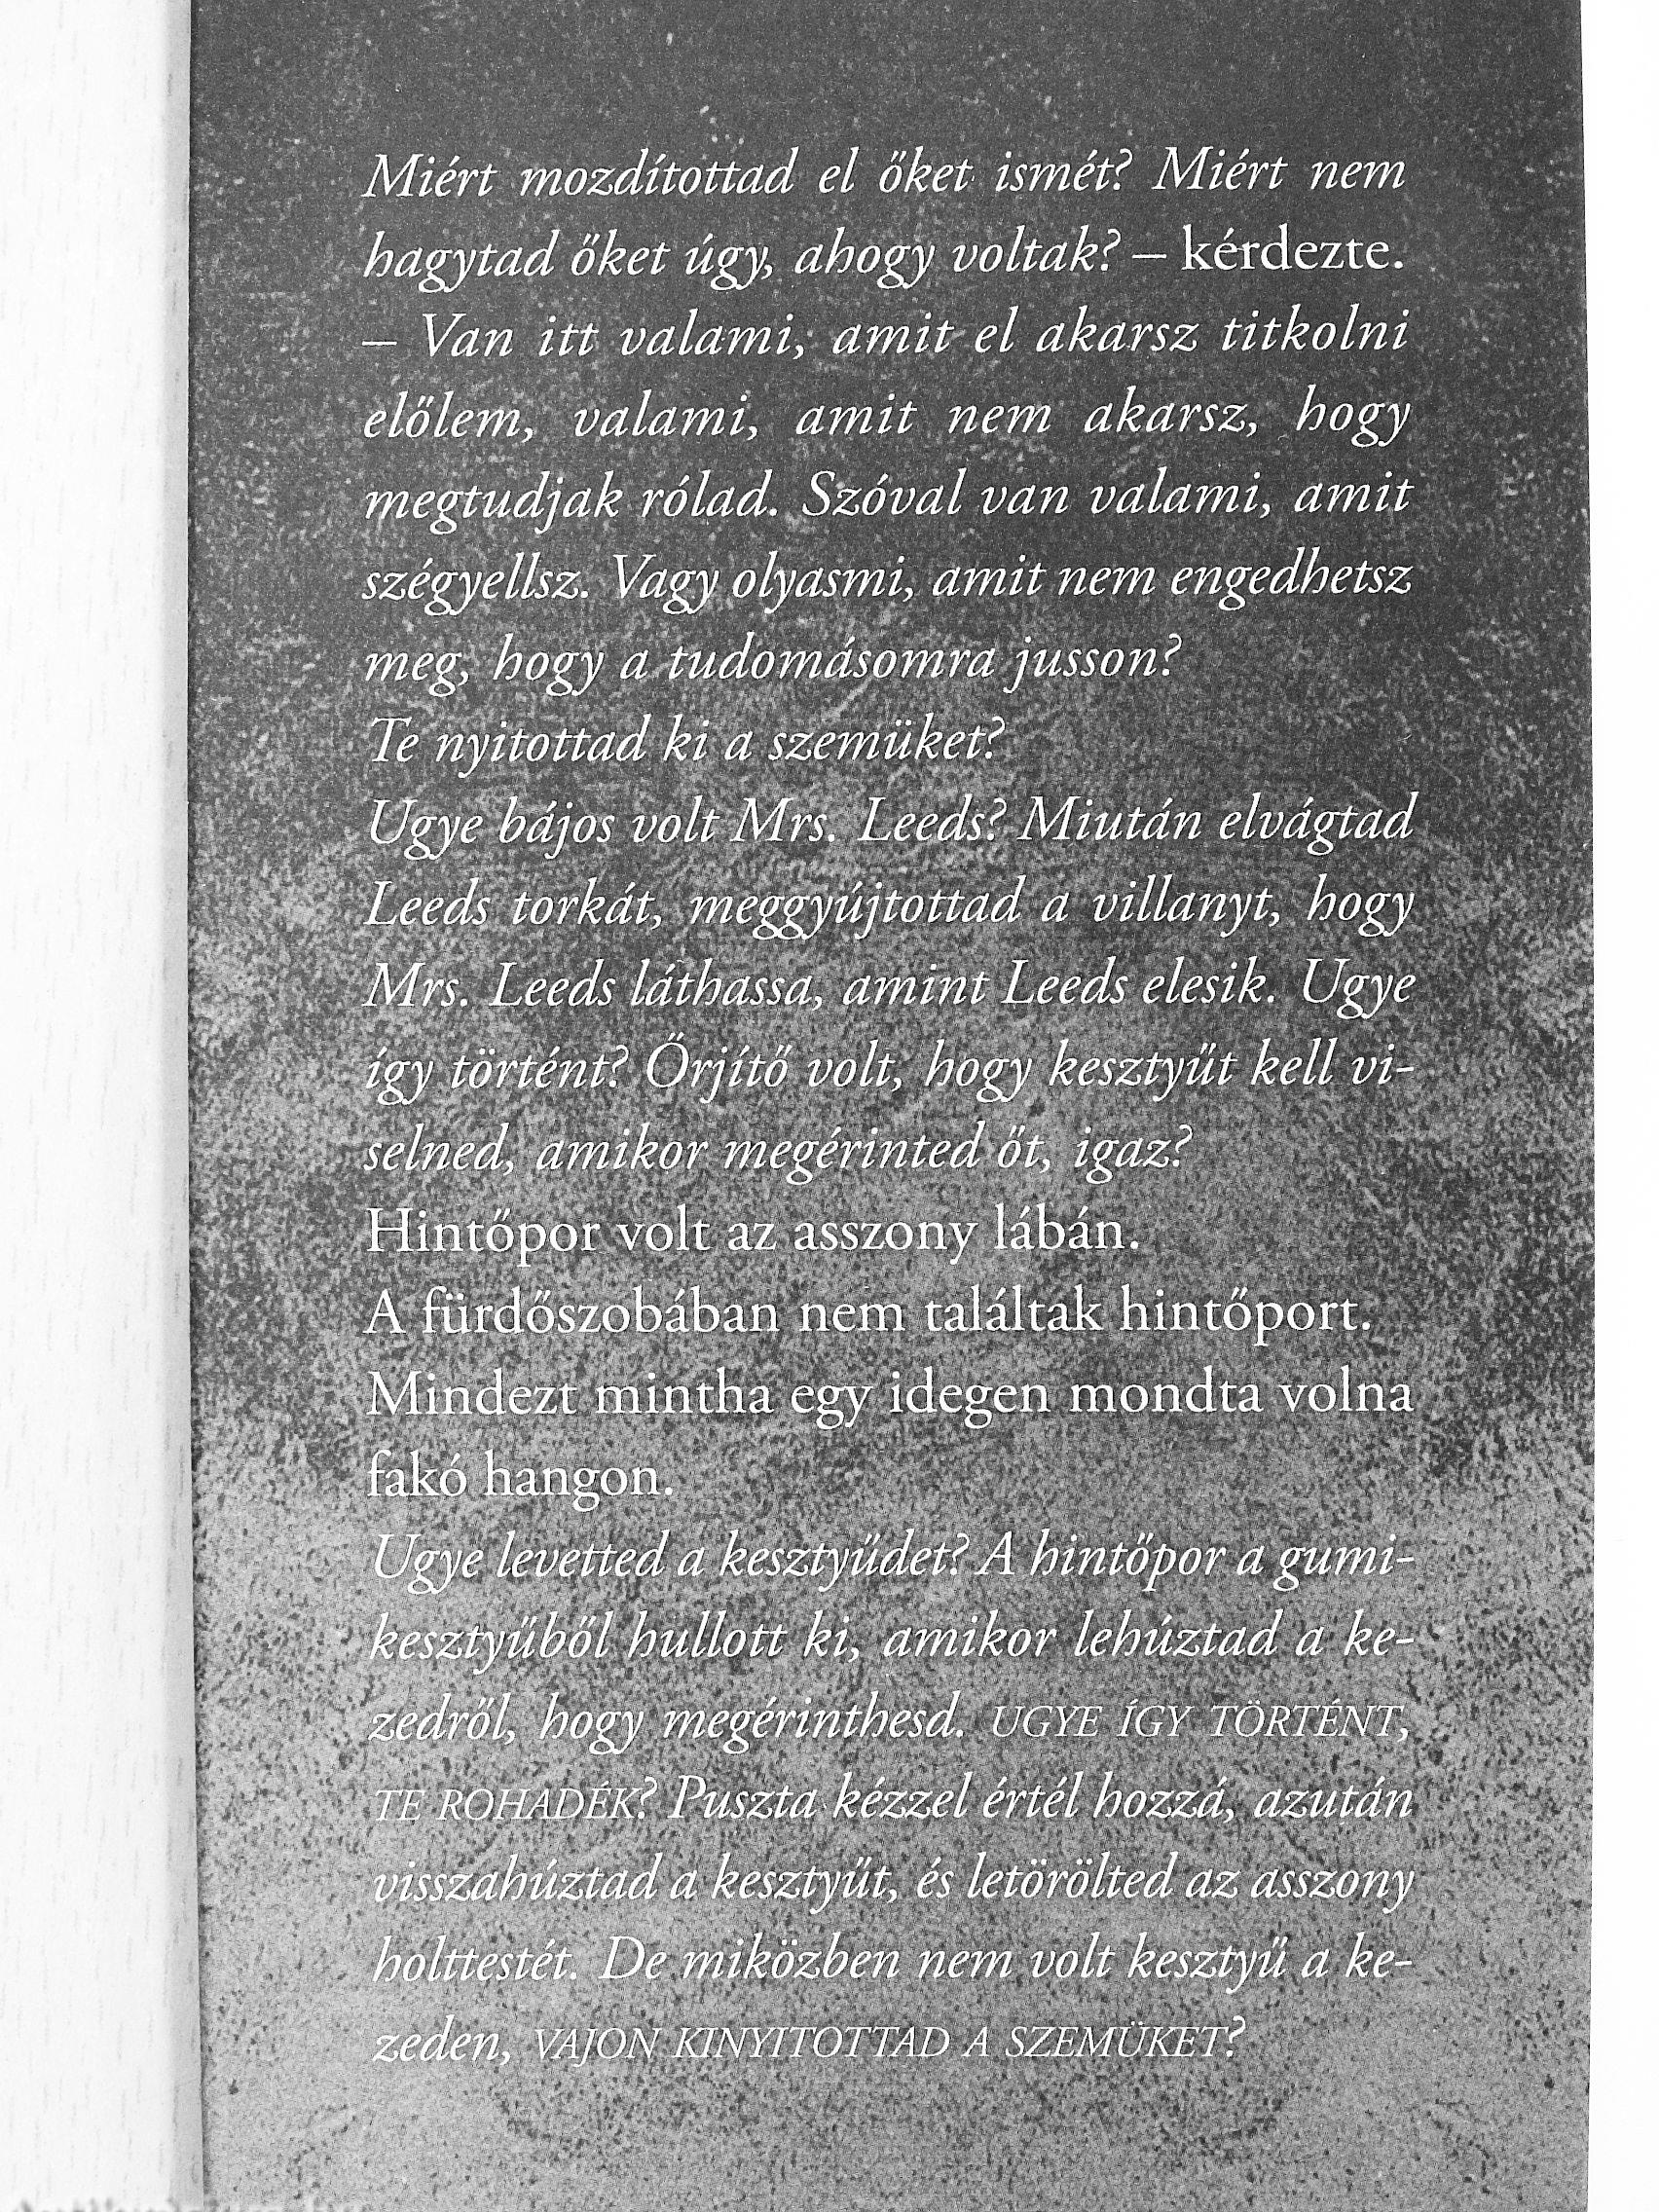 Miért mozdítottad el őket ismét? Miért nem
hagytad őket úgy, ahogy voltak? – kérdezte.
– Van itt valami, amit el akarsz titkolni
előlem, valami, amit nem akarsz, hogy
megtudjak rólad. Szóval van valami, amit
szégyellsz. Vagy olyasmi, amit nem engedhetsz
meg, hogy a tudomásomra jusson?
Te nyitottad ki a szemüket?
Ugye bájos volt Mrs. Leeds? Miután elvágtad
Leeds torkát, meggyújtottad a villanyt, hogy
Mrs. Leeds láthassa, amint Leeds elesik. Ugye
így történt? Őrjítő volt, hogy kesztyűt kell vi-
selned, amikor megérinted őt, igaz?
Hintőpor volt az asszony lábán.
A fürdőszobában nem találtak hintőport.
Mindezt mintha egy idegen mondta volna
fakó hangon.
Ugye levetted a kesztyűdet? A hintőpor a gumi-
kesztyűből hullott ki, amikor lehúztad a ke-
zedről, hogy megérinthesd. UGYE ÍGY TÖRTÉNT,
TE ROHADÉK? Puszta kézzel értél hozzá, azután
visszahúztad a kesztyűt, és letörölted az asszony
holttestét. De miközben nem volt kesztyű a ke-
zeden, VAJON KINYITOTTAD A SZEMÜKET?